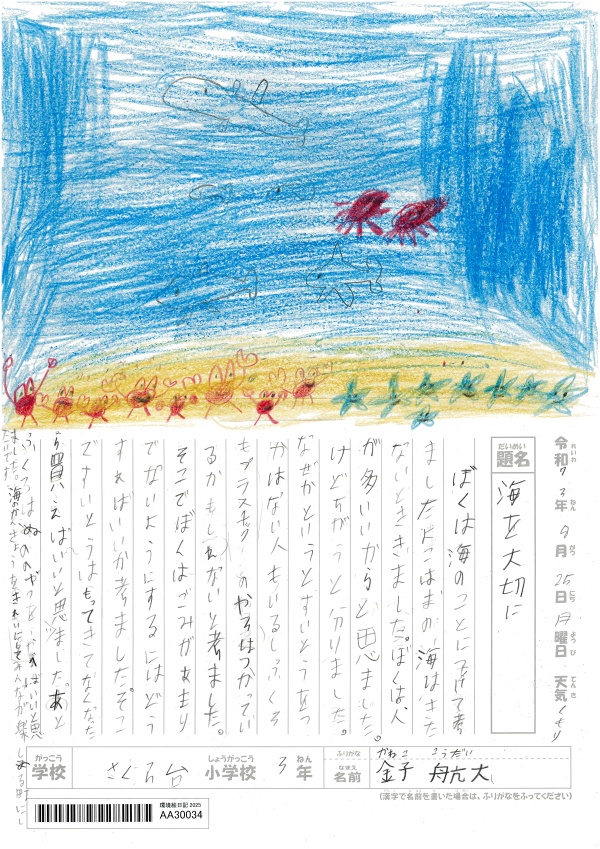 令和7年9月25日月曜日 天気くもり
れいわ ねん がつ にち ようび てんき
だいめい
題名 海を大切に
ぼくは海のことに
ましたよこはまの海はきた
ないとききました。ぼくは人
が多いいからだと思ました。
けどちがうと分りました。
なぜかというとすいとうとか
かはない人もいるしふくろ
もプラスチックのやつはつかってい
るかもしれないと考ました。
そこでぼくはごみがあまり
でないようにするにはどう
すればいいか考ました。そこ
ですいとうはもってきてなくなった
ら買えばいいと思ました。あと
ふくろはぬののやつを
がっこう しょうがっこう ねん
学校 さくら台 小学校 3年
ふりがな かねこ こうだい
なまえ
名前 金子 航大
(漢字で名前を書いた場合は、ふりがなをふってください)
環境絵日記 2025
AA30034